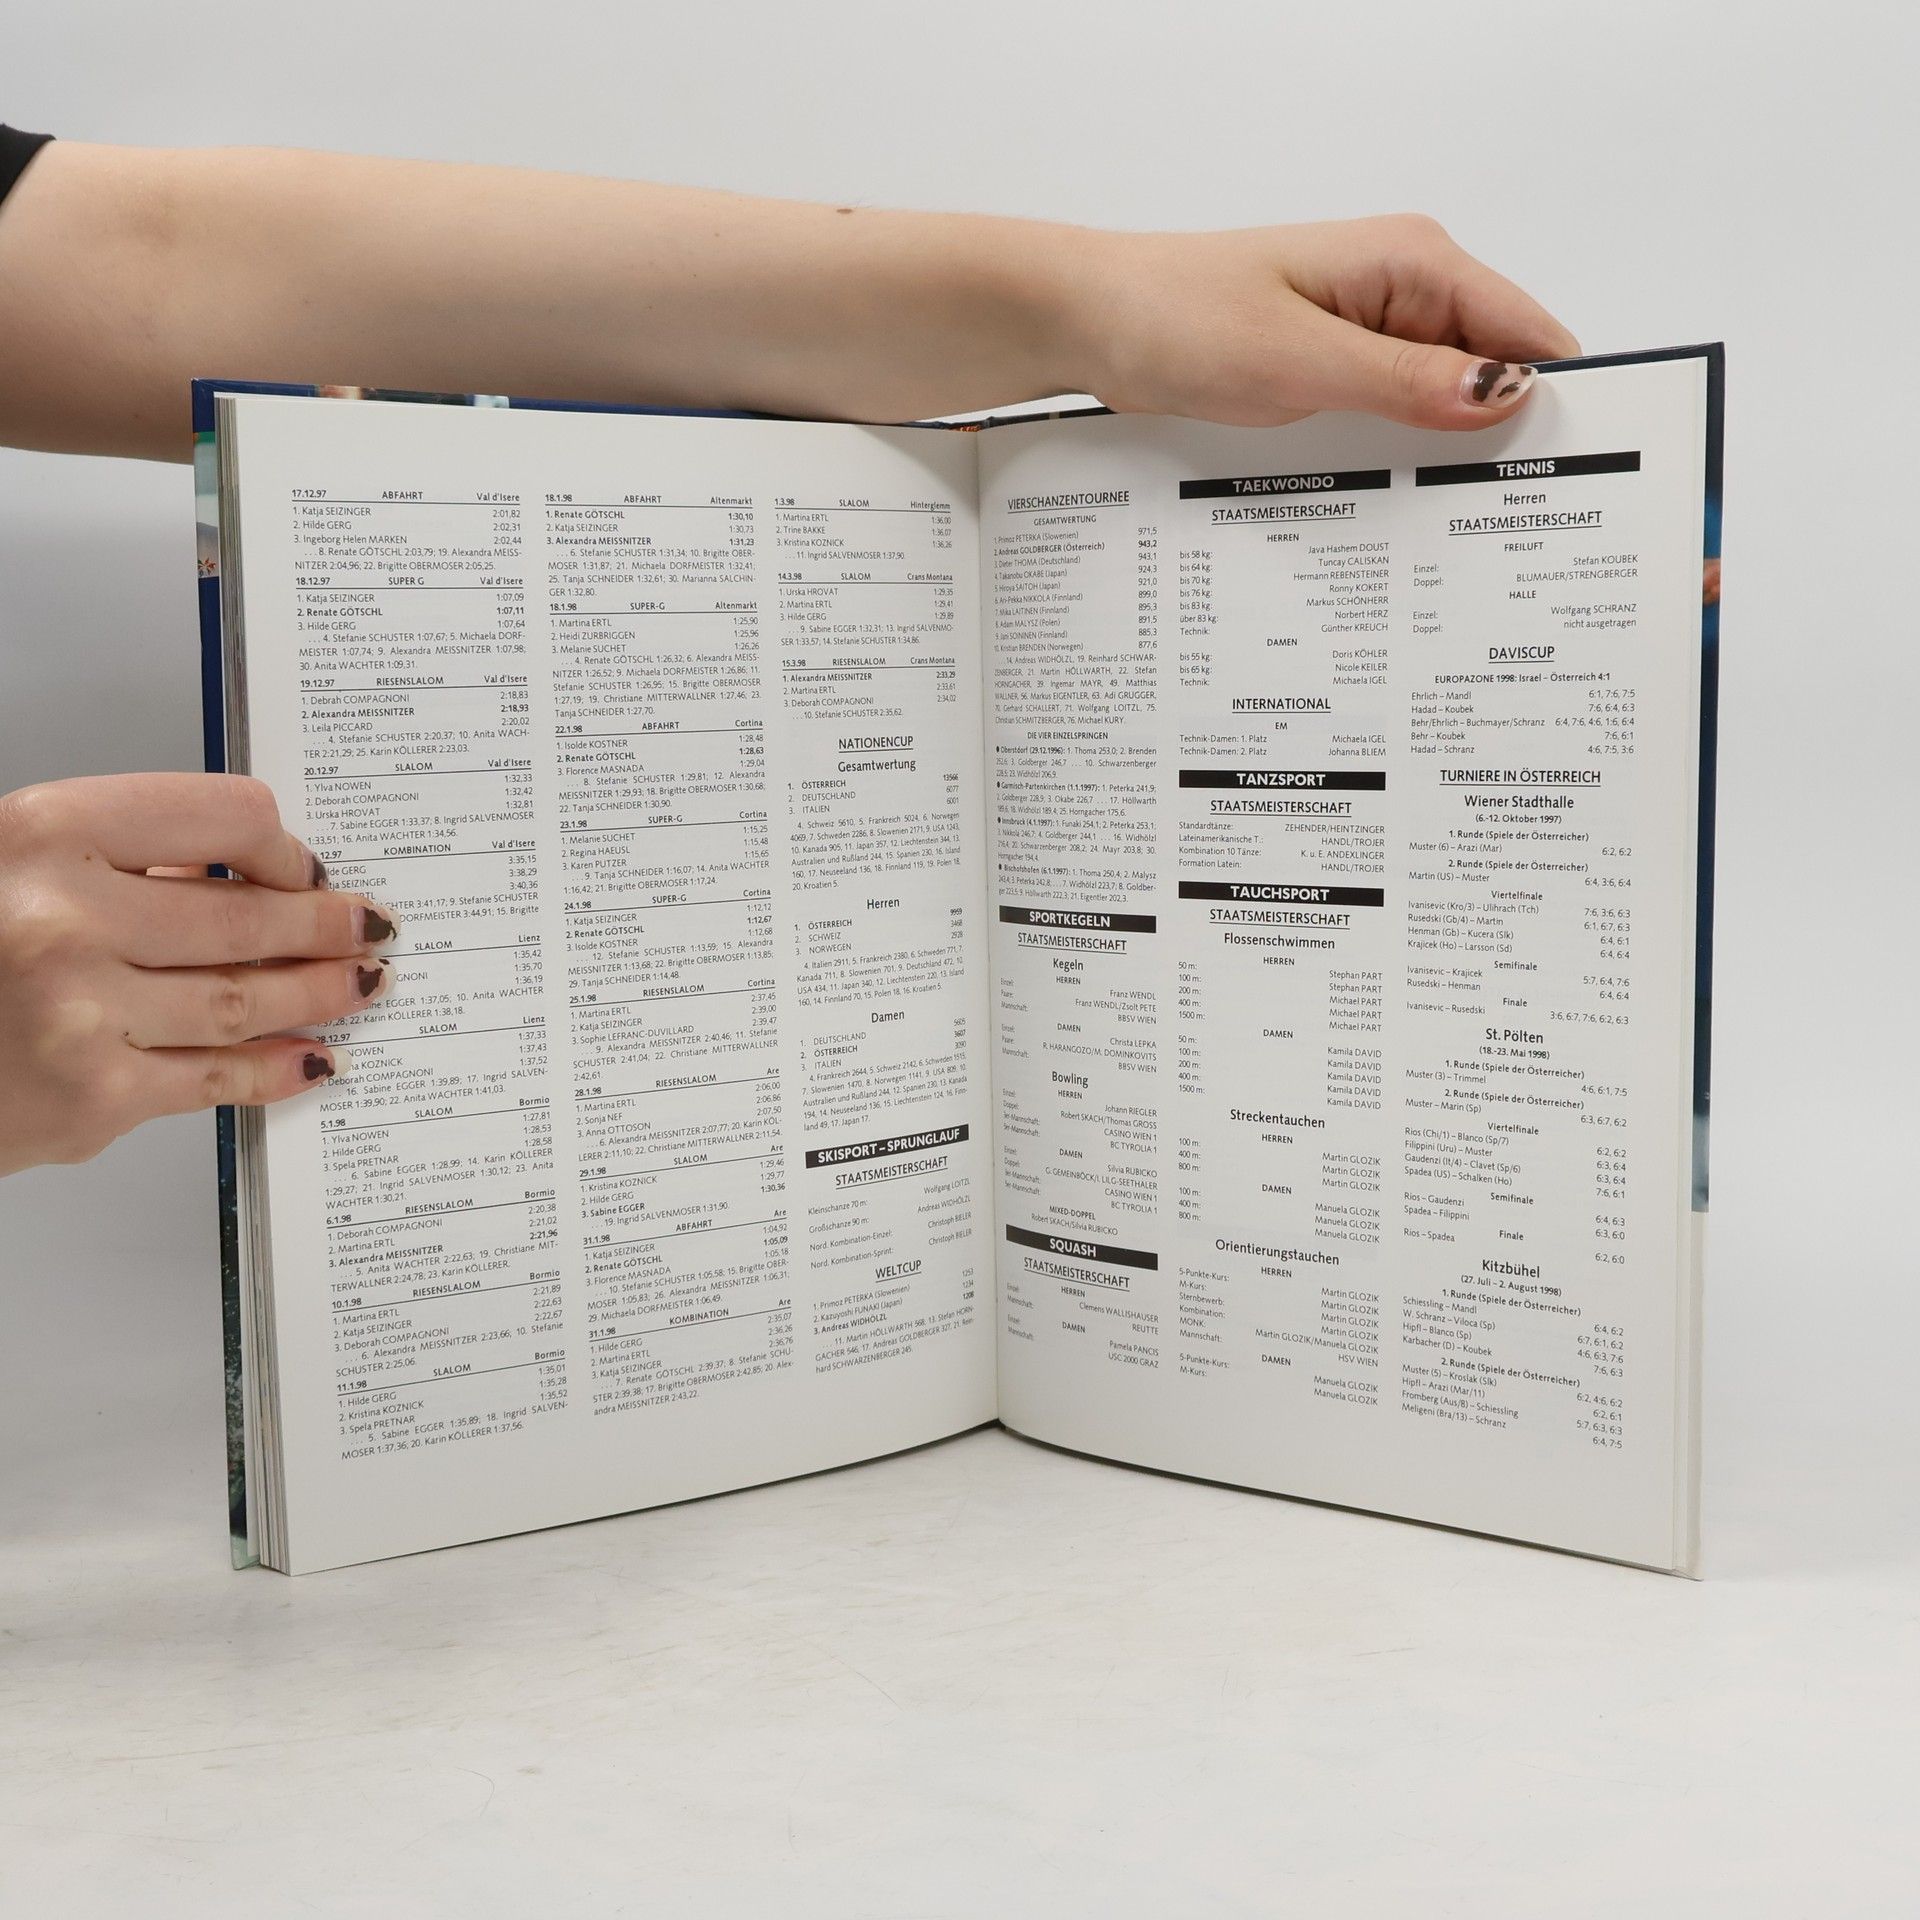 17.12.97 ABFAHRT Val d'Isere
1. Katja SEIZINGER 2:01,82
2. Hilde GERG 2:02,31
3. Ingeborg Helen MARKEN 2:02,44
. . . 8. Renate GÖTSCHL 2:03,79; 19. Alexandra MEISS-
NITZER 2:04,96; 22. Brigitte OBERMOSER 2:05,25.
18.12.97 SUPER G Val d'Isere
1. Katja SEIZINGER 1:07,09
2. Renate GÖTSCHL 1:07,11
3. Hilde GERG 1:07,64
. . . 4. Stefanie SCHUSTER 1:07,67; 5. Michaela DORF-
MEISTER 1:07,74; 9. Alexandra MEISSNITZER 1:07,98;
30. Anita WACHTER 1:09,31.
19.12.97 RIESENSLALOM Val d'Isere
1. Debrah COMPAGNONI 2:18,83
2. Alexandra MEISSNITZER 2:18,93
3. Leila PICCARD 2:20,02
. . . 4. Stefanie SCHUSTER 2:20,37; 10. Anita WACH-
TER 2:21,29; 25. Karin KÖLLERER 2:23,03.
20.12.97 SLALOM Val d'Isere
1. Ylva NOWEN 1:32,33
2. Deborah COMPAGNONI 1:32,42
3. Urska HROVAT 1:32,81
. . . 7. Sabine EGGER 1:33,37; 8. Ingrid SALVENMOSER
1:33,51; 16. Anita WACHTER 1:34,56.
12.97 KOMBINATION Val d'Isere
GERG 3:35,15
SEIZINGER 3:38,29
3:40,36
3:41,17; 9. Stefanie SCHUSTER
DORFMEISTER 3:44,91; 15. Brigitte
SLALOM Lienz
1:35,42
1:35,70
1:36,19
EGGER 1:37,05; 10. Anita WACHTER
22. Karin KÖLLERER 1:38,18.
28.12.97 SLALOM Lienz
NOWEN 1:37,33
KOZNICK 1:37,43
3. Deborah COMPAGNONI 1:37,52
. . . 16. Sabine EGGER 1:39,89; 17. Ingrid SALVEN-
MOSER 1:39,90; 22. Anita WACHTER 1:41,03.
5.1.98 SLALOM Bormio
1. Ylva NOWEN 1:27,81
2. Hilde GERG 1:28,53
3. Spela PRETNAR 1:28,58
. . . 6. Sabine EGGER 1:28,99; 14. Karin KÖLLERER
1:29,27; 21. Ingrid SALVENMOSER 1:30,12; 23. Anita
WACHTER 1:30,21.
6.1.98 RIESENSLALOM Bormio
1. Deborah COMPAGNONI 2:20,38
2. Martina ERTL 2:21,02
3. Alexandra MEISSNITZER 2:21,96
. . . 5. Anita WACHTER 2:22,63; 19. Christiane MIT-
TERWALLNER 2:24,78; 23. Karin KÖLLERER.
10.1.98 RIESENSLALOM Bormio
1. Martina ERTL 2:21,89
2. Katja SEIZINGER 2:22,63
3. Deborah COMPAGNONI 2:22,67
. . . 6. Alexandra MEISSNITZER 2:23,66; 10. Stefanie
SCHUSTER 2:25,06.
11.1.98 SLALOM Bormio
1. Hilde GERG 1:35,01
2. Kristina KOZNICK 1:35,28
3. Spela PRETNAR 1:35,52
. . . 5. Sabine EGGER 1:35,89; 18. Ingrid SALVEN-
MOSER 1:37,36; 20. Karin KÖLLERER 1:37,56.
18.1.98 ABFAHRT Altenmarkt
1. Renate GÖTSCHL 1:30,10
2. Katja SEIZINGER 1:30,73
3. Alexandra MEISSNITZER 1:31,23
. . . 6. Stefanie SCHUSTER 1:31,34; 10. Brigitte OBER-
MOSER 1:31,87; 21. Michaela DORFMEISTER 1:32,41;
25. Tanja SCHNEIDER 1:32,61; 30. Marianna SALCHIN-
GER 1:32,80.
18.1.98 SUPER-G Altenmarkt
1. Martina ERTL 1:25,90
2. Heidi ZURBRIGGEN 1:25,96
3. Melanie SUCHET 1:26,26
. . . 4. Renate GÖTSCHL 1:26,32; 6. Alexandra MEISS-
NITZER 1:26,52; 9. Michaela DORFMEISTER 1:26,86; 11.
Stefanie SCHUSTER 1:26,95; 15. Brigitte OBERMOSER
1:27,19; 19. Christiane MITTERWALLNER 1:27,46; 23.
Tanja SCHNEIDER 1:27,70.
22.1.98 ABFAHRT Cortina
1. Isolde KOSTNER 1:28,48
2. Renate GÖTSCHL 1:28,63
3. Florence MASNADA 1:29,04
. . . 8. Stefanie SCHUSTER 1:29,81; 12. Alexandra
MEISSNITZER 1:29,93; 18. Brigitte OBERMOSER 1:30,68;
22. Tanja SCHNEIDER 1:30,90.
23.1.98 SUPER-G Cortina
1. Melanie SUCHET 1:15,25
2. Regina HAEUSL 1:15,48
3. Karen PUTZER 1:15,65
. . . 9. Tanja SCHNEIDER 1:16,07; 14. Anita WACHTER
1:16,42; 21. Brigitte OBERMOSER 1:17,24.
24.1.98 SUPER-G Cortina
1. Katja SEIZINGER 1:12,12
2. Renate GÖTSCHL 1:12,67
3. Isolde KOSTNER 1:12,68
. . . 12. Stefanie SCHUSTER 1:13,59; 15. Alexandra
MEISSNITZER 1:13,68; 22. Brigitte OBERMOSER 1:13,85;
29. Tanja SCHNEIDER 1:14,48.
25.1.98 RIESENSLALOM Cortina
1. Martina ERTL 2:37,45
2. Katja SEIZINGER 2:39,00
3. Sophie LEFRANC-DUVILLARD 2:39,47
. . . 9. Alexandra MEISSNITZER 2:40,46; 11. Stefanie
SCHUSTER 2:41,04; 22. Christiane MITTERWALLNER
2:42,61.
28.1.98 RIESENSLALOM Are
1. Martina ERTL 2:06,00
2. Sonja NEF 2:06,86
3. Anna OTTOSON 2:07,50
. . . 6. Alexandra MEISSNITZER 2:07,77; 20. Karin KÖL-
LERER 2:11,10; 22. Christiane MITTERWALLNER 2:11,54.
29.1.98 SLALOM Are
1. Kristina KOZNICK 1:29,46
2. Hilde GERG 1:29,77
3. Sabine EGGER 1:30,36
. . . 19. Ingrid SALVENMOSER 1:31,90.
31.1.98 ABFAHRT Are
1. Katja SEIZINGER 1:04,92
2. Renate GÖTSCHL 1:05,09
3. Florence MASNADA 1:05,18
. . . 10. Stefanie SCHUSTER 1:05,58; 15. Brigitte OBER-
MOSER 1:05,83; 26. Alexandra MEISSNITZER 1:06,31;
29. Michaela DORFMEISTER 1:06,49.
31.1.98 KOMBINATION Are
1. Hilde GERG 2:35,07
2. Martina ERTL 2:36,26
3. Katja SEIZINGER 2:36,76
. . . 7. Renate GÖTSCHL 2:39,37; 8. Stefanie SCHU-
STER 2:39,38; 17. Brigitte OBERMOSER 2:42,85; 20. Alex-
andra MEISSNITZER 2:43,22.
1.3.98 SLALOM Hinterglemm
1. Martina ERTL 1:36,00
2. Trine BAKKE 1:36,07
3. Kristina KOZNICK 1:36,26
. . . 11. Ingrid SALVENMOSER 1:37,90.
14.3.98 SLALOM Crans Montana
1. Urska HROVAT 1:29,35
2. Martina ERTL 1:29,41
3. Hilde GERG 1:29,89
. . . 9. Sabine EGGER 1:32,31; 13. Ingrid SALVENMO-
SER 1:33,57; 14. Stefanie SCHUSTER 1:34,86.
15.3.98 RIESENSLALOM Crans Montana
1. Alexandra MEISSNITZER 2:33,29
2. Martina ERTL 2:33,61
3. Deborah COMPAGNONI 2:34,02
. . . 10. Stefanie SCHUSTER 2:35,62.
NATIONENCUP
Gesamtwertung
1. ÖSTERREICH 13566
2. DEUTSCHLAND 6077
3. ITALIEN 6001
4. Schweiz 5610, 5. Frankreich 5024, 6. Norwegen
4069, 7. Schweden 2286, 8. Slowenien 2171, 9. USA 1243,
10. Kanada 905, 11. Japan 357, 12. Liechtenstein 344, 13.
Australien und Rußland 244, 15. Spanien 230, 16. Island
160, 17. Neuseeland 136, 18. Finnland 119, 19. Polen 18,
20. Kroatien 5.
Herren
1. ÖSTERREICH 9959
2. SCHWEIZ 3468
3. NORWEGEN 2928
4. Italien 2911, 5. Frankreich 2380, 6. Schweden 771, 7.
Kanada 711, 8. Slowenien 701, 9. Deutschland 472, 10.
USA 434, 11. Japan 340, 12. Liechtenstein 220, 13. Island
160, 14. Finnland 70, 15. Polen 18, 16. Kroatien 5.
Damen
1. DEUTSCHLAND 5605
2. ÖSTERREICH 3607
3. ITALIEN 3090
4. Frankreich 2644, 5. Schweiz 2142, 6. Schweden 1515,
7. Slowenien 1470, 8. Norwegen 1141, 9. USA 809, 10.
Australien und Rußland 244, 12. Spanien 230, 13. Kanada
194, 14. Neuseeland 136, 15. Liechtenstein 124, 16. Finn-
land 49, 17. Japan 17.
SKISPORT – SPRUNGLAUF
STAATSMEISTERSCHAFT
Kleinschanze 70 m: Wolfgang LOITZL
Großschanze 90 m: Andreas WIDHÖLZL
Nord. Kombination-Einzel: Christoph BIELER
Nord. Kombination-Sprint: Christoph BIELER
WELTCUP
1. Primoz PETERKA (Slowenien) 1253
2. Kazuyoshi FUNAKI (Japan) 1234
3. Andreas WIDHÖLZL 1208
. . . 11. Martin HÖLLWARTH 568, 13. Stefan HORN-
GACHER 546, 17. Andreas GOLDBERGER 327, 21. Rein-
hard SCHWARZENBERGER 245.
VIERSCHANZENTOURNEE
GESAMTWERTUNG
1. Primoz PETERKA (Slowenien) 971,5
2. Andreas GOLDBERGER (Österreich) 943,2
3. Dieter THOMA (Deutschland) 943,1
4. Takanobu OKABE (Japan) 924,3
5. Hiroya SAITOH (Japan) 921,0
6. Ari-Pekka NIKKOLA (Finnland) 899,0
7. Mika LAITINEN (Finnland) 895,3
8. Adam MALYSZ (Polen) 891,5
9. Jani SOININEN (Finnland) 885,3
10. Kristian BRENDEN (Norwegen) 877,6
. . . 14. Andreas WIDHÖLZL, 19. Reinhard SCHWAR-
ZENBERGER, 21. Martin HÖLLWARTH, 22. Stefan
HORNGACHER, 39. Ingemar MAYR, 49. Matthias
WALLNER, 56. Markus EIGENTLER, 63. Adi GRUGGER,
70. Gerhard SCHALLERT, 71. Wolfgang LOITZL, 75.
Christian SCHMITZBERGER, 76. Michael KURY.
DIE VIER EINZELSPRINGEN
● Oberstdorf (29.12.1996): 1. Thoma 253,0; 2. Brenden
252,6; 3. Goldberger 246,7 . . . 10. Schwarzenberger
228,5; 23. Widhölzl 206,9.
● Garmisch-Partenkirchen (1.1.1997): 1. Peterka 241,9;
2. Goldberger 228,9; 3. Okabe 226,7 . . . 17. Höllwarth
189,6, 18. Widhölzl 189,4; 25. Horngacher 175,6.
● Innsbruck (4.1.1997): 1. Funaki 254,1; 2. Peterka 253,1;
3. Nikkola 246,7; 4. Goldberger 244,1 . . . 16. Widhölzl
216,4, 20. Schwarzenberger 208,2; 24. Mayr 203,8; 30.
Horngacher 194,4.
● Bischofshofen (6.1.1997): 1. Thoma 250,4; 2. Malysz
243,4; 3. Peterka 242,8 . . . 7. Widhölzl 223,7; 8. Goldber-
ger 223,5; 9. Höllwarth 222,3; 21. Eigentler 202,3.
SPORTKEGELN
STAATSMEISTERSCHAFT
Kegeln
HERREN
Einzel: Franz WENDL
Paare: Franz WENDL/Zsolt PETE
Mannschaft: BBSV WIEN
DAMEN
Einzel: Christa LEPKA
Paare: R. HARANGOZO/M. DOMINKOVITS
Mannschaft: BBSV WIEN
Bowling
HERREN
Einzel: Johann RIEGLER
Doppel: Robert SKACH/Thomas GROSS
CASINO WIEN 1
BC TYROLIA 1
DAMEN
Einzel: Silvia RUBICKO
Doppel: G. GEMEINBÖCK/I. LILG-SEETHALER
CASINO WIEN 1
BC TYROLIA 1
MIXED-DOPPEL
Robert SKACH/Silvia RUBICKO
SQUASH
STAATSMEISTERSCHAFT
HERREN
Einzel: Clemens WALLISHAUSER
Mannschaft: REUTTE
DAMEN
Einzel: Pamela PANCIS
Mannschaft: USC 2000 GRAZ
TAEKWONDO
STAATSMEISTERSCHAFT
HERREN
bis 58 kg: Java Hashem DOUST
bis 64 kg: Tuncay CALISKAN
bis 70 kg: Hermann REBENSTEINER
bis 76 kg: Ronny KOKERT
bis 83 kg: Markus SCHÖNHERR
über 83 kg: Norbert HERZ
Technik: Günther KREUCH
DAMEN
bis 55 kg: Doris KÖHLER
bis 65 kg: Nicole KEILER
Technik: Michaela IGEL
INTERNATIONAL
EM
Technik-Damen: 1. Platz Michaela IGEL
Technik-Damen: 2. Platz Johanna BLIEM
TANZSPORT
STAATSMEISTERSCHAFT
Standardtänze: ZEHENDER/HEINTZINGER
Lateinamerikanische T.: HANDL/TROJER
Kombination 10 Tänze: K. u. E. ANDEXLINGER
Formation Latein: HANDL/TROJER
TAUCHSPORT
STAATSMEISTERSCHAFT
Flossenschwimmen
HERREN
50 m: Stephan PART
100 m: Stephan PART
200 m: Michael PART
400 m: Michael PART
1500 m: Michael PART
DAMEN
50 m: Kamila DAVID
100 m: Kamila DAVID
200 m: Kamila DAVID
400 m: Kamila DAVID
1500 m: Kamila DAVID
Streckentauchen
HERREN
100 m: Martin GLOZIK
400 m: Martin GLOZIK
800 m: Martin GLOZIK
DAMEN
100 m: Manuela GLOZIK
400 m: Manuela GLOZIK
800 m: Manuela GLOZIK
Orientierungstauchen
HERREN
5-Punkte-Kurs: Martin GLOZIK
M-Kurs: Martin GLOZIK
Sternbewerb: Martin GLOZIK
Kombination: Martin GLOZIK
MONK: Martin GLOZIK/Manuela GLOZIK
Mannschaft: HSV WIEN
DAMEN
5-Punkte-Kurs: Manuela GLOZIK
M-Kurs: Manuela GLOZIK
TENNIS
Herren
STAATSMEISTERSCHAFT
FREILUFT
Einzel: Stefan KOUBEK
Doppel: BLUMAUER/STRENGBERGER
HALLE
Einzel: Wolfgang SCHRANZ
Doppel: nicht ausgetragen
DAVISCUP
EUROPAZONE 1998: Israel – Österreich 4:1
Ehrlich – Mandl 6:1, 7:6, 7:5
Hadad – Koubek 7:6, 6:4, 6:3
Behr/Ehrlich – Buchmayer/Schranz 6:4, 7:6, 4:6, 1:6, 6:4
Behr – Koubek 7:6, 6:1
Hadad – Schranz 4:6, 7:5, 3:6
TURNIERE IN ÖSTERREICH
Wiener Stadthalle
(6.-12. Oktober 1997)
1. Runde (Spiele der Österreicher)
Muster (6) – Arazi (Mar) 6:2, 6:2
2. Runde (Spiele der Österreicher)
Martin (US) – Muster 6:4, 3:6, 6:4
Viertelfinale
Ivanisevic (Kro/3) – Ulihrach (Tch) 7:6, 3:6, 6:3
Rusedski (Gb/4) – Martin 6:1, 6:7, 6:3
Henman (Gb) – Kucera (Slk) 6:4, 6:1
Krajicek (Ho) – Larsson (Sd) 6:4, 6:4
Semifinale
Ivanisevic – Krajicek 5:7, 6:4, 7:6
Rusedski – Henman 6:4, 6:4
Finale
Ivanisevic – Rusedski 3:6, 6:7, 7:6, 6:2, 6:3
St. Pölten
(18.-23. Mai 1998)
1. Runde (Spiele der Österreicher)
Muster (3) – Trimmel 4:6, 6:1, 7:5
2. Runde (Spiele der Österreicher)
Muster – Marin (Sp) 6:3, 6:7, 6:2
Viertelfinale
Rios (Chi/1) – Blanco (Sp/7) 6:2, 6:2
Filippini (Uru) – Muster 6:3, 6:4
Gaudenzi (It/4) – Clavet (Sp/6) 6:3, 6:4
Spadea (US) – Schalken (Ho) 7:6, 6:1
Semifinale
Rios – Gaudenzi 6:4, 6:3
Spadea – Filippini 6:3, 6:0
Finale
Rios – Spadea 6:2, 6:0
Kitzbühel
(27. Juli – 2. August 1998)
1. Runde (Spiele der Österreicher)
Schiessling – Mandl 6:4, 6:2
W. Schranz – Viloca (Sp) 6:7, 6:1, 6:2
Hipfl – Blanco (Sp) 4:6, 6:3, 7:6
Karbacher (D) – Koubek 7:6, 6:3
2. Runde (Spiele der Österreicher)
Muster (5) – Kroslak (Slk) 6:2, 4:6, 6:2
Hipfl – Arazi (Mar/11) 6:2, 6:1
Fromberg (Aus/8) – Schiessling 5:7, 6:3, 6:3
Meligeni (Bra/13) – Schranz 6:4, 7:5